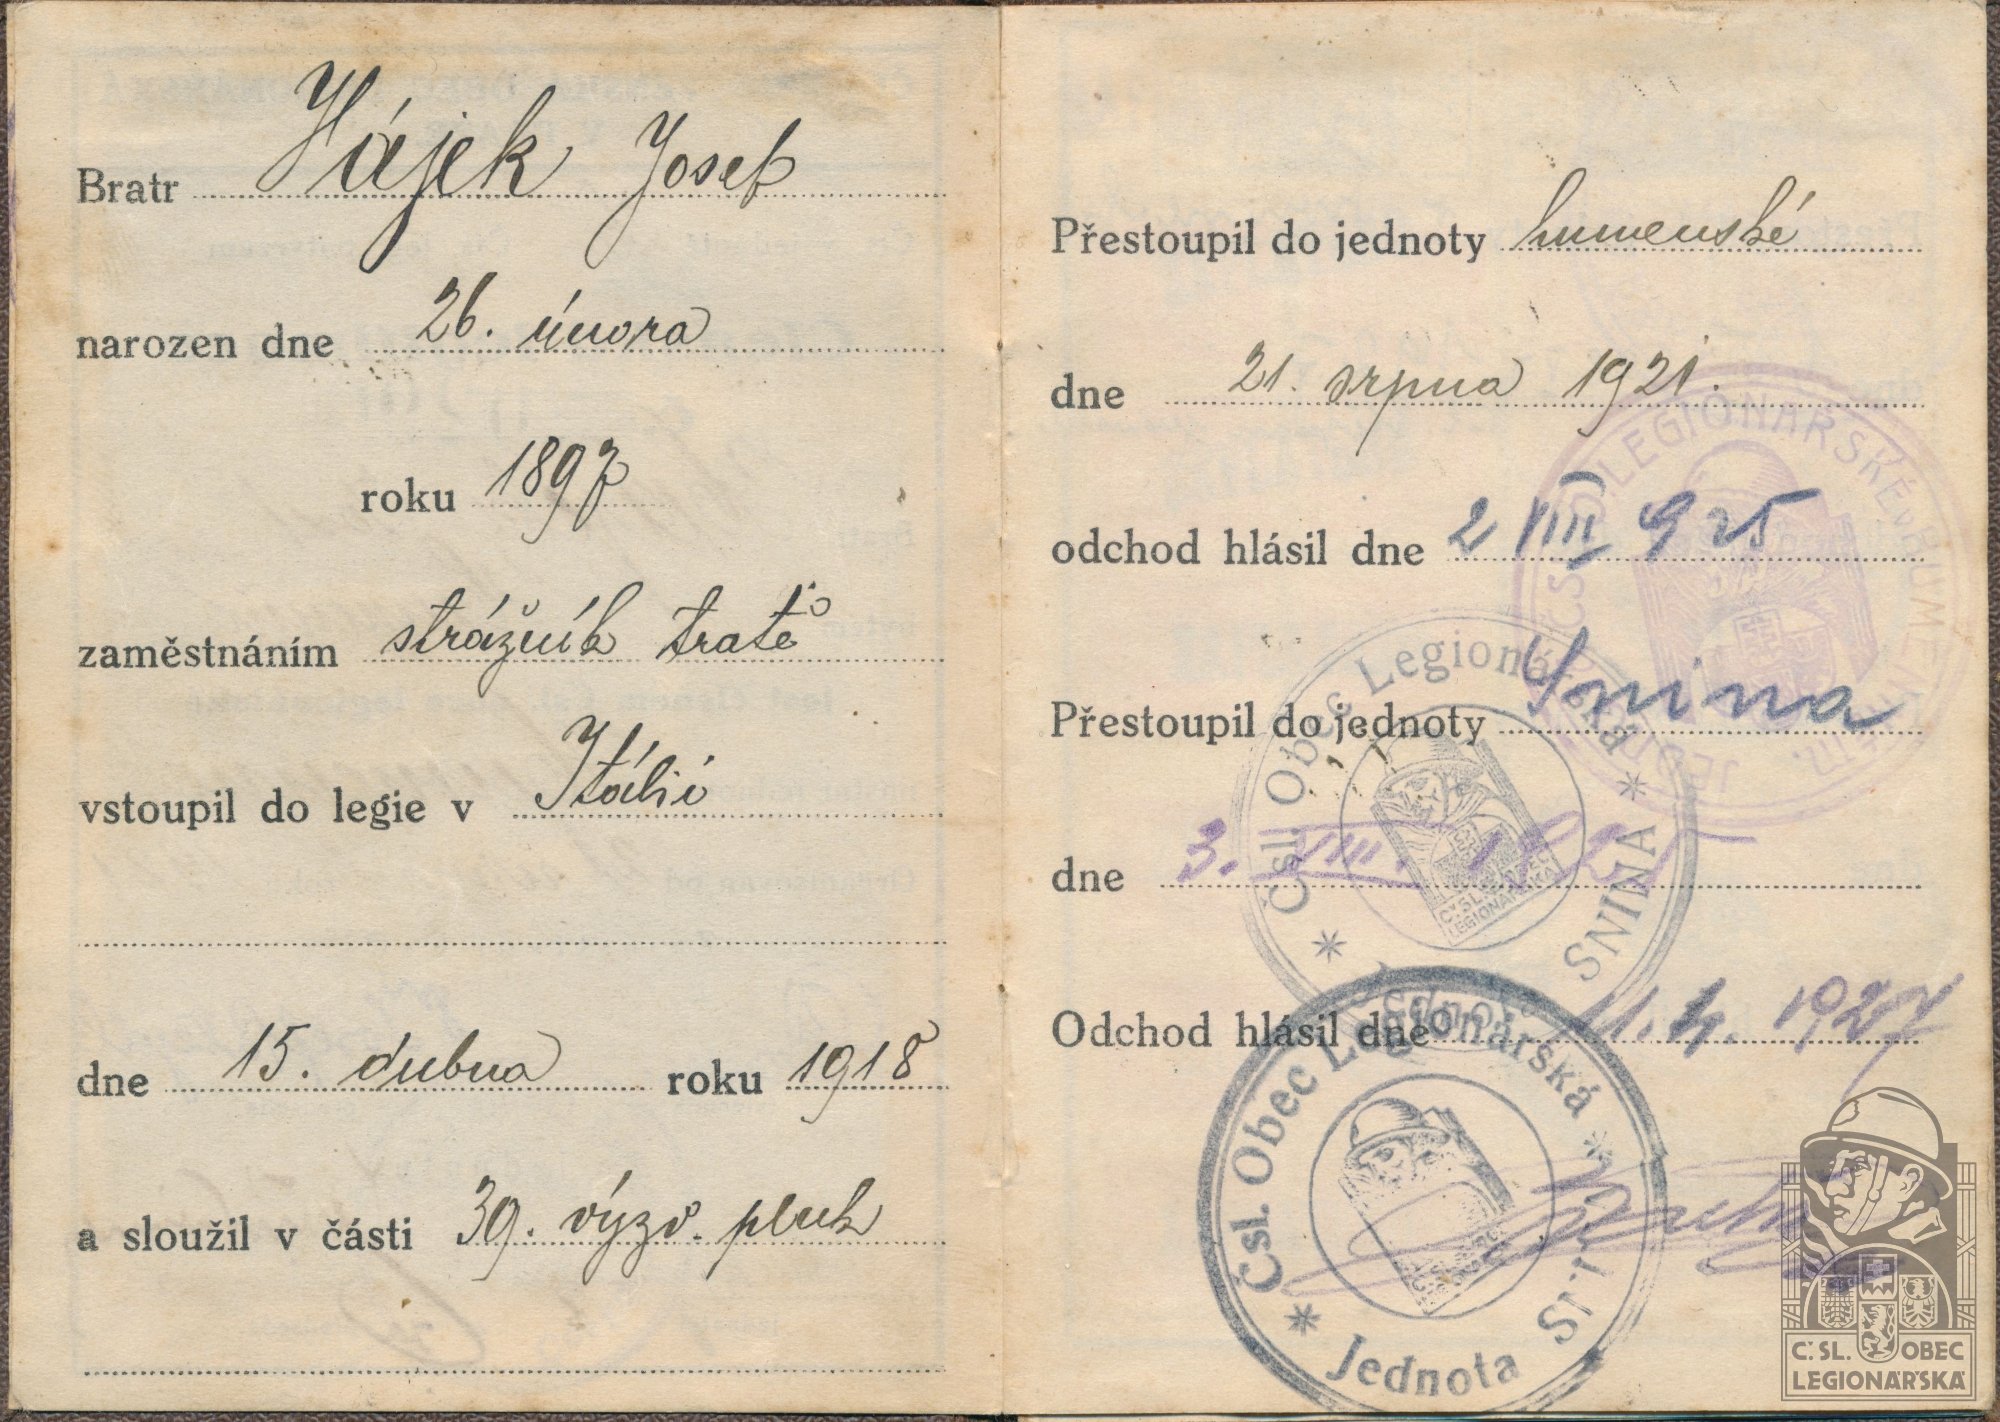 Bratr Hájek Josef
narozen dne 26. února
roku 1897
zaměstnáním strážník tratě
vstoupil do legie v Itálii
dne 15. dubna roku 1918
a sloužil v části 39. výzv. pluk
Přestoupil do jednoty humenské
dne 21. srpna 1921.
odchod hlásil dne 2 VIII 925
Přestoupil do jednoty Snina
dne 3. VIII. 1925
Odchod hlásil dne 11. 4. 1927
LEGIONÁŘSKÉ V HUMENNÉM
Čsl. Obec Legionářská
* Jednota SNINA *
Č. SL. OBEC
LEGIONÁŘSKÁ
Čsl. Obec Legionářská
* Jednota
Č. SL. OBEC
LEGIONÁŘSKÁ